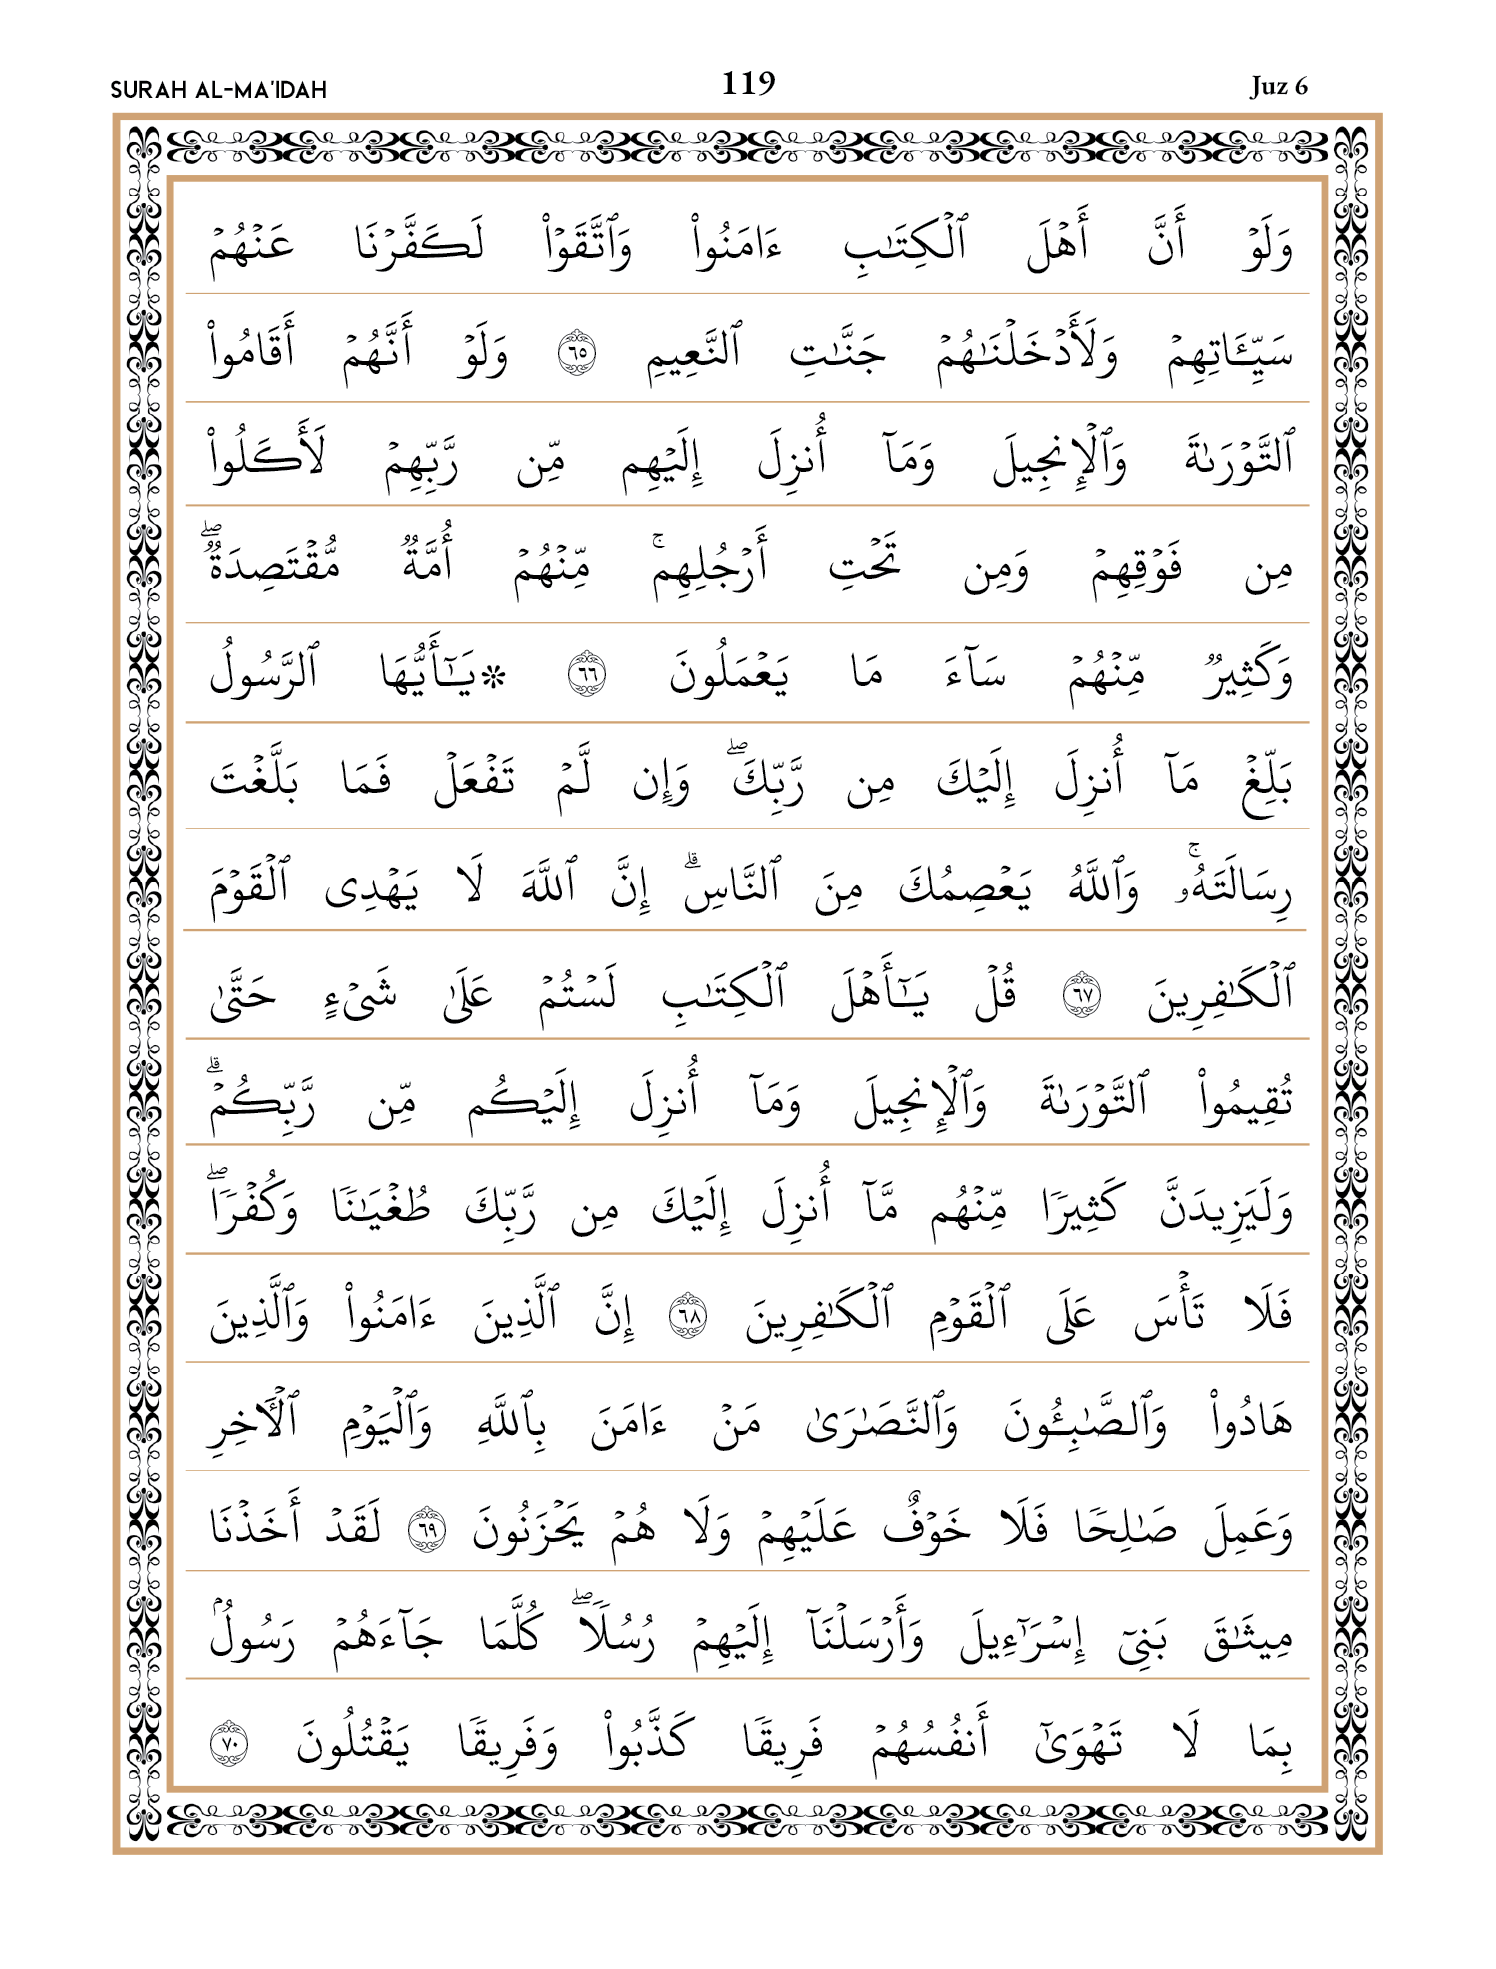 SURAH AL-MA'IDAH 119 Juz 6
وَلَوۡ أَنَّ أَهۡلَ ٱلۡكِتَٰبِ ءَامَنُواْ وَٱتَّقَوۡاْ لَكَفَّرۡنَا عَنۡهُمۡ
سَيِّـَٔاتِهِمۡ وَلَأَدۡخَلۡنَٰهُمۡ جَنَّٰتِ ٱلنَّعِيمِ ٦٥ وَلَوۡ أَنَّهُمۡ أَقَامُواْ
ٱلتَّوۡرَىٰةَ وَٱلۡإِنجِيلَ وَمَآ أُنزِلَ إِلَيۡهِم مِّن رَّبِّهِمۡ لَأَكَلُواْ
مِن فَوۡقِهِمۡ وَمِن تَحۡتِ أَرۡجُلِهِمۚ مِّنۡهُمۡ أُمَّةٞ مُّقۡتَصِدَةٞۖ
وَكَثِيرٞ مِّنۡهُمۡ سَآءَ مَا يَعۡمَلُونَ ٦٦ ۞يَٰٓأَيُّهَا ٱلرَّسُولُ
بَلِّغۡ مَآ أُنزِلَ إِلَيۡكَ مِن رَّبِّكَۖ وَإِن لَّمۡ تَفۡعَلۡ فَمَا بَلَّغۡتَ
رِسَالَتَهُۥۚ وَٱللَّهُ يَعۡصِمُكَ مِنَ ٱلنَّاسِۗ إِنَّ ٱللَّهَ لَا يَهۡدِي ٱلۡقَوۡمَ
ٱلۡكَٰفِرِينَ ٦٧ قُلۡ يَٰٓأَهۡلَ ٱلۡكِتَٰبِ لَسۡتُمۡ عَلَىٰ شَيۡءٍ حَتَّىٰ
تُقِيمُواْ ٱلتَّوۡرَىٰةَ وَٱلۡإِنجِيلَ وَمَآ أُنزِلَ إِلَيۡكُم مِّن رَّبِّكُمۡۗ
وَلَيَزِيدَنَّ كَثِيرٗا مِّنۡهُم مَّآ أُنزِلَ إِلَيۡكَ مِن رَّبِّكَ طُغۡيَٰنٗا وَكُفۡرٗاۖ
فَلَا تَأۡسَ عَلَى ٱلۡقَوۡمِ ٱلۡكَٰفِرِينَ ٦٨ إِنَّ ٱلَّذِينَ ءَامَنُواْ وَٱلَّذِينَ
هَادُواْ وَٱلصَّٰبِـُٔونَ وَٱلنَّصَٰرَىٰ مَنۡ ءَامَنَ بِٱللَّهِ وَٱلۡيَوۡمِ ٱلۡأٓخِرِ
وَعَمِلَ صَٰلِحٗا فَلَا خَوۡفٌ عَلَيۡهِمۡ وَلَا هُمۡ يَحۡزَنُونَ ٦٩ لَقَدۡ أَخَذۡنَا
مِيثَٰقَ بَنِيٓ إِسۡرَٰٓءِيلَ وَأَرۡسَلۡنَآ إِلَيۡهِمۡ رُسُلٗاۖ كُلَّمَا جَآءَهُمۡ رَسُولُۢ
بِمَا لَا تَهۡوَىٰٓ أَنفُسُهُمۡ فَرِيقٗا كَذَّبُواْ وَفَرِيقٗا يَقۡتُلُونَ ٧٠